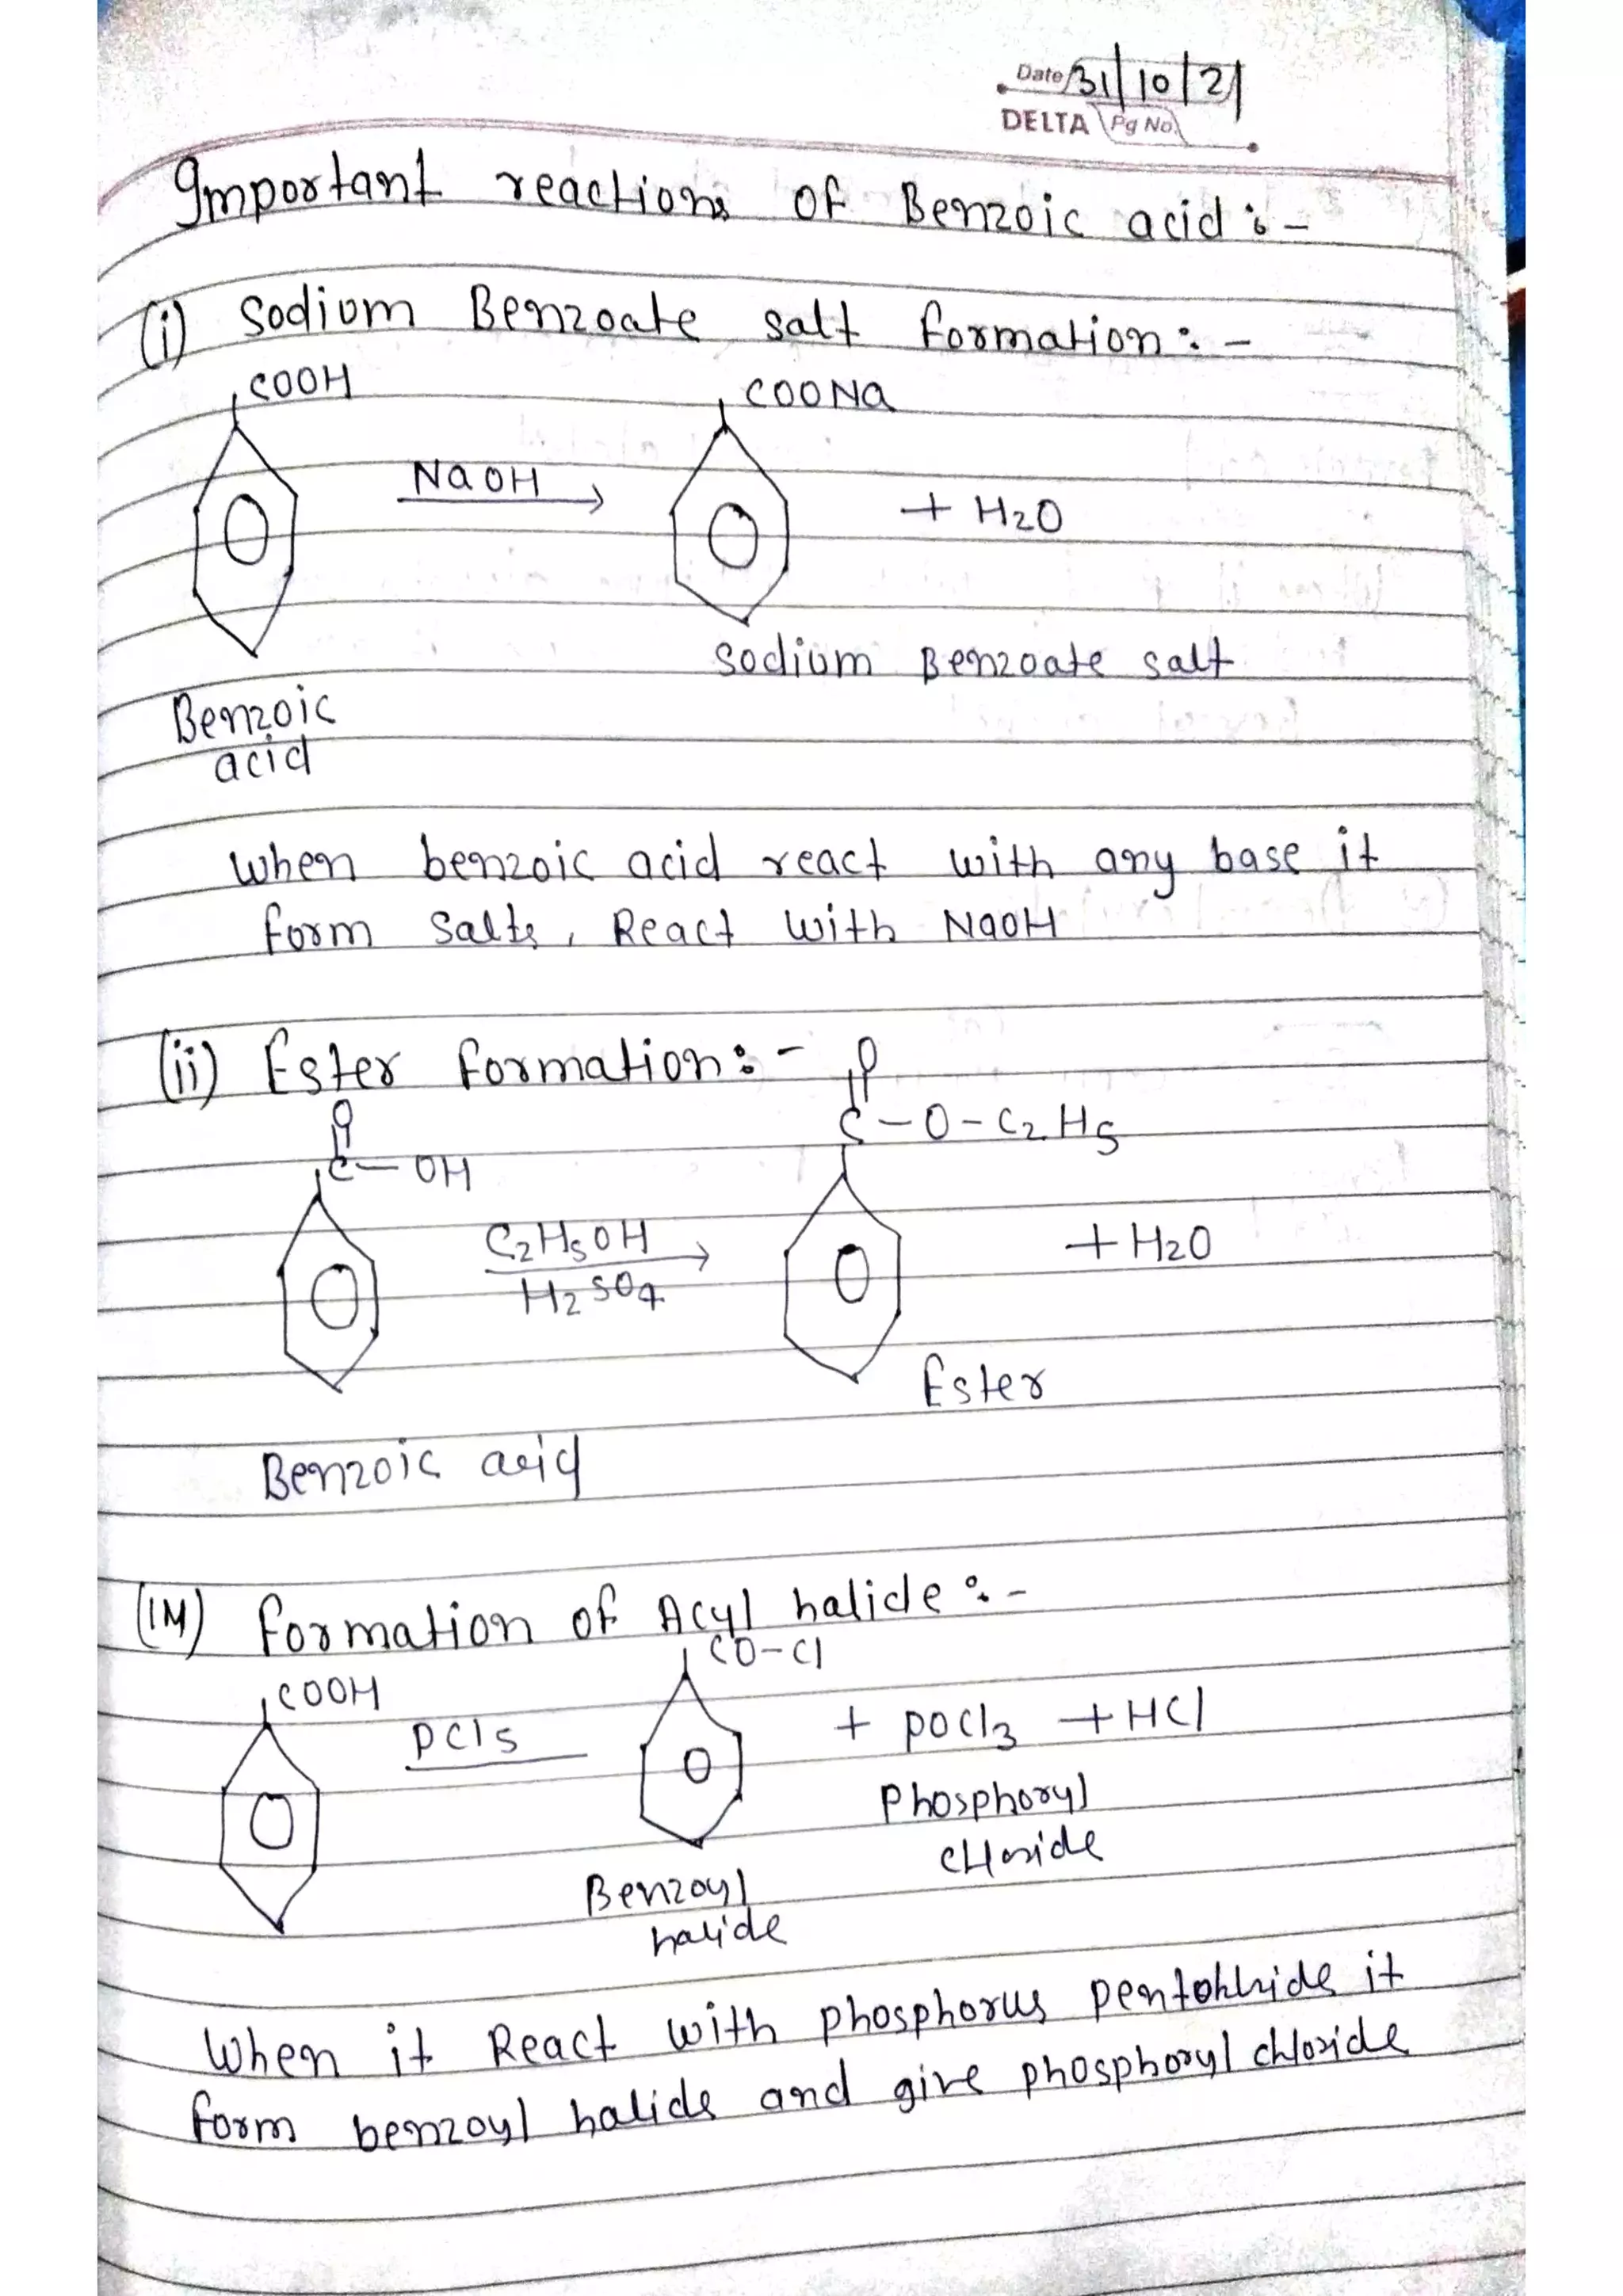 Date 31/10/21
DELTA Pg No.
Important reactions of Benzoic acid :-
(i) Sodium Benzoate salt formation :-
COOH COONa
NaOH
+ H2O
Sodium Benzoate salt
Benzoic
acid
When benzoic acid react with any base it
form salts, React with NaOH
(ii) Ester formation :-
O
C-O-C2H5
O
C-OH
C2H5OH
H2SO4
+ H2O
Ester
Benzoic acid
(iii) formation of Acyl halide :-
CO-Cl
COOH
PCl5
+ POCl3 + HCl
Phosphoryl
Benzoyl
halide
When it React with phosphorus it
form benzoyl halide and give phosphoryl chloride